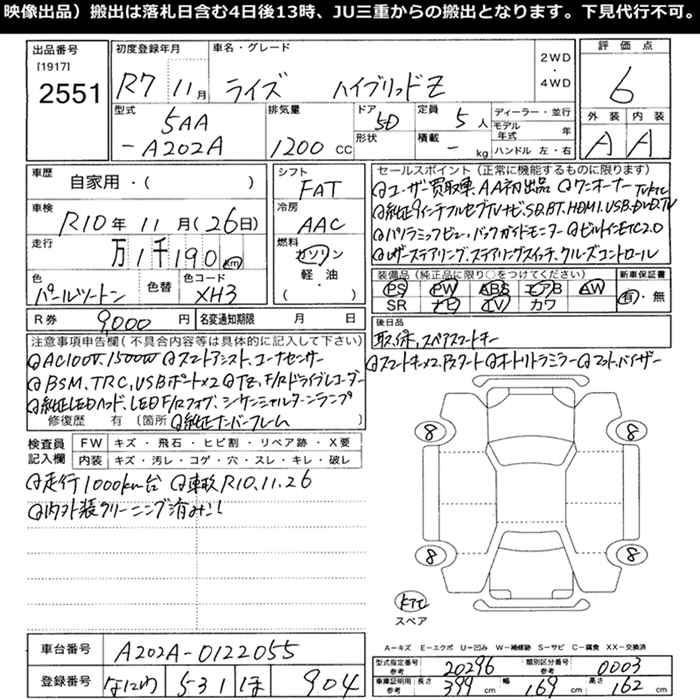 映像出品）搬出は落札日含む4日後13時、JU三重からの搬出となります。下見代行不可。
出品番号
[1917]
2551
初度登録年月
R7 11月
車名・グレード
ライズ ハイブリッドZ
2WD
・
4WD
評価点
6
外装 内装
A A
型式
5AA
-A202A
排気量
1200 CC
ドア
5D
形状
定員
5人
積載
- kg
ディーラー・並行
モデル年式 年
ハンドル 左・右
車歴
自家用・( )
車検
R10年 11月(26日)
走行
万1千190 km
色
パールツートン
色替
色コード
XH3
シフト
FAT
冷房
AAC
燃料
ガソリン
軽・油
( )
セールスポイント（正常に機能するものに限ります）
ユーザー買取車、AA初出品 ワンオーナー
純正9インチフルセグTVナビ、SD.BT.HDMI.USB.DVD.TV
パノラミックビュー、バックガイドモニター ビルトインETC2.0
レザーステアリング、ステアリングスイッチ、クルーズコントロール
装備品（純正品に限り○をつけてください）
新車保証書
PS PW ABS エアB AW
SR ナビ TV カワ
有・無
R券
9,000円
名変通知期限 月 日
後日品
取、保、スペアスマートキー
注意事項申告欄（不具合内容等は具体的に記入して下さい）
AC100V.1500W スマートアシスト、コーナーセンサー
スマートキーX2、Pスタート オートリトラミラー マット、バイザー
BSM、TRC、USBポートX2 F/Rドライブレコーダー
純正LEDヘッド、LED F/Rフォグ、シーケンシャルターンランプ
修復歴 有（箇所 純正ナンバーフレーム
検査員
記入欄
FW キズ・飛石・ヒビ割・リペア跡・X要
内装 キズ・汚レ・コゲ・穴・スレ・キレ・破レ
走行1000km台 車検R10.11.26
内外装クリーニング済み
8 8
8 8
スペア
A－キズ E－エクボ U－凹み W－補修跡 S－サビ C－腐食 XX－交換済
車台番号
A202A-0122055
登録番号
なにわ 531 ほ 904
型式指定番号
参考
20296
類別区分番号
参考
0003
車庫証明用
参考
長さ 399cm 幅 169cm 高さ 162cm